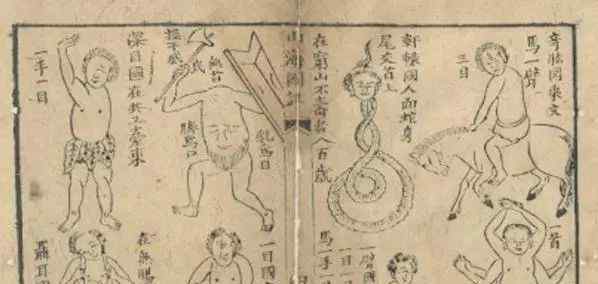 奇肱囯乘文
馬一臂
三目
軒轅國人面蛇身
尾交首上
在窮山不壽者八百歲
乳為目
無首
臍為口
操干戚
深目國在共工臺東
一手一目
一首
一臂國
一目一
馬一手
一目國
在無腸
聶耳國